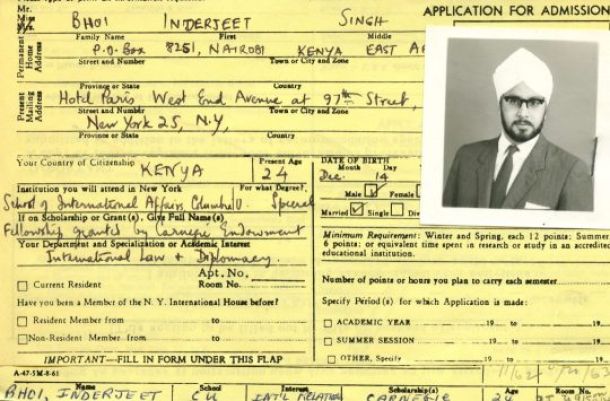 APPLICATION FOR ADMISSION
Mr.
Miss
Mrs.
BHOI INDERJEET SINGH
Family Name First Middle
Permanent Home Address
P.O. Box 8251, NAIROBI KENYA EAST
Street and Number Town or City and Zone
Province or State Country
Present Mailing Address
Hotel Paris West End Avenue at 97th Street,
Street and Number Town or City and Zone
New York 25, N.Y,
Province or State Country
Your Country of Citizenship KENYA Present Age 24
DATE OF BIRTH
Month Day
Dec. 14
Institution you will attend in New York For what Degree?
School of International Affairs Columbia U. Special
Male Female
Married Single
If on Scholarship or Grant(s), Give Full Name(s)
Fellowship granted by Carnegie Endowment
Your Department and Specialization or Academic Interest
International Law + Diplomacy.
Apt. No.
Current Resident Room No.
Have you been a Member of the N. Y. International House before?
Resident Member from to
Non-Resident Member from to
IMPORTANT—FILL IN FORM UNDER THIS FLAP
Minimum Requirement: Winter and Spring, each 12 points: Summer
6 points: or equivalent time spent in research or study in an accredited
educational institution.
Number of points or hours you plan to carry each semester
Specify Period(s) for which Application is made:
ACADEMIC YEAR 19 to 19
SUMMER SESSION 19 to 19
OTHER, Specify 19 to 19
A-47-5M-8-61
Name School Interest Scholarship(s) Age Room No.
BHOI, INDERJEET CU INT'L RELATION CARNEGIE 24